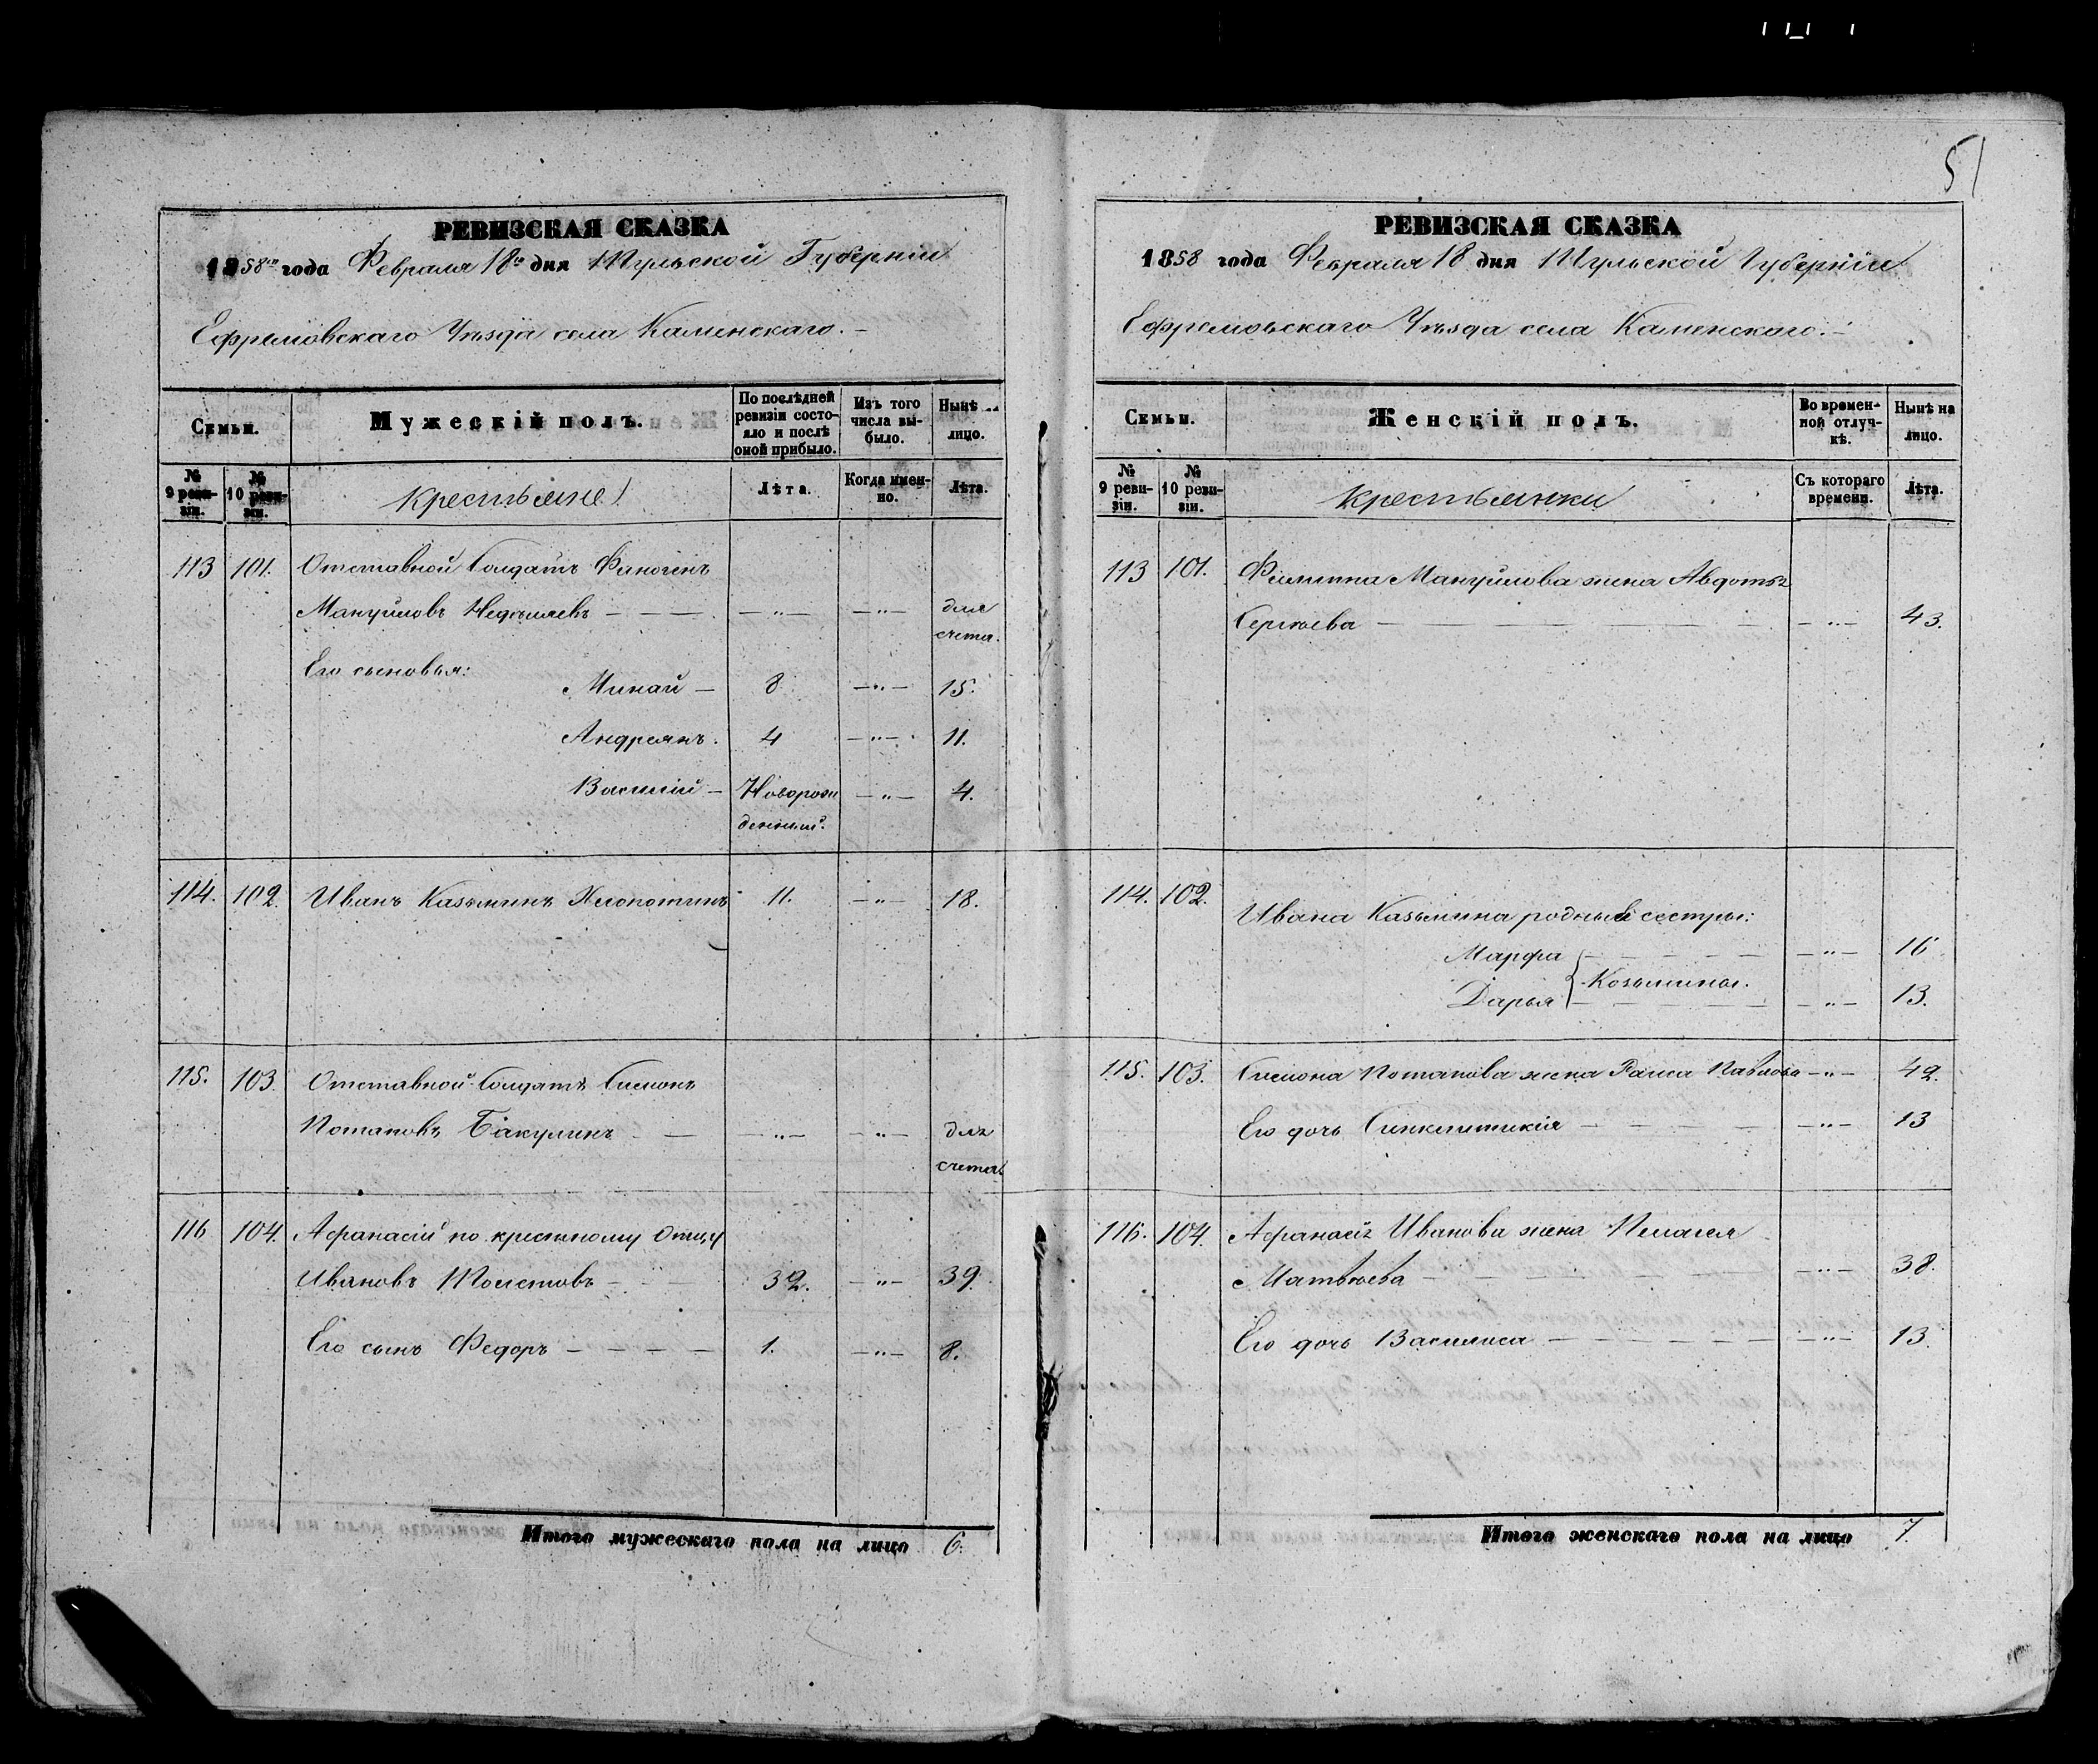 51
РЕВИЗСКАЯ СКАЗКА
1858го года Февраля 18го дня Тульской Губерніи
Ефремовскаго Уѣзда села Каменскаго.
Семьи.
Мужескій полъ.
По послѣдней ревизіи состояло и послѣ оной прибыло.
Изъ того числа выбыло.
Нынѣ лицо.
№ 9 ревизіи.
№ 10 ревизіи.
Крестьяне
Лѣта.
Когда именно.
Лѣта.
113 101. Отставной Солдатъ Финогенъ
Мануйловъ Недѣляевъ — — — —„— —„— для
счета.
Его сыновья:
Минай — 8 —„— 15.
Андреянъ. 4 —„— 11.
Василій — Новорож —„— 4.
денный.
114. 102. Иванъ Казьминъ Хлопотинъ 11. —„— 18.
115. 103. Отставной Солдатъ Симонъ
Потаповъ Бакулинъ — — —„— „— для
счета
116 104. Афанасій по крестному Отцу
Ивановъ Толстовъ — — 32. —„— 39.
Его сынъ Федоръ — — — — 1. —„— 8.
Итого мужескаго пола на лицо 6.
РЕВИЗСКАЯ СКАЗКА
1858 года Февраля 18 дня Тульской Губерніи
Ефремовскаго Уѣзда села Каменскаго.
Семьи.
Женскій полъ.
Во временной отлучкѣ.
Нынѣ на лицо.
№ 9 ревизіи.
№ 10 ревизіи.
Крестьянки
Съ котораго времени.
Лѣта.
113 101. Мануйлова жена Авдотья
Сергѣева — — — — — — —„— 43.
114. 102. Ивана Казьмина родныя сестры:
Марфа — — — — —„— 16
Козьмины.
Дарья — — — — —„— 13.
115. 103. Симона Потапова жена Раиса Павлова —„— 42.
Его дочь Синклитикія — — — —„— 13
116. 104. Афанасія Иванова жена Пелагея
Матвѣева — — — — — —„— 38.
Его дочь Василиса — — — — —„— 13.
Итого женскаго пола на лицо 7.